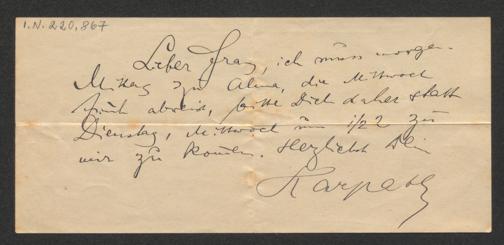 I.N. 220.867
Lieber Franz, ich muss morgen
Mittag zu Alma, die Mittwoch
früh abreist, bitte Dich daher statt
Dienstag, Mittwoch um 1/2 2 zu
mir zu kommen. Herzlichst Dein
Karpath